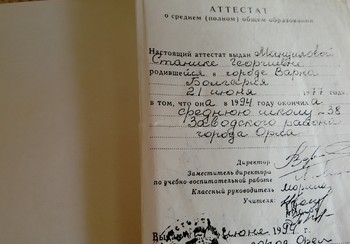 АТТЕСТАТ
о среднем (полном) общем образовании
Настоящий аттестат выдан
Станике Георгиевне
родившейся в городе Варна
Болгария
21 июня 1977 года
в том, что она в 1994 году окончила
среднюю школу № 38
Заводского района
города Орла
Директор
Заместитель директора
по учебно-воспитательной работе
Классный руководитель
Учителя:
июня 1994 г.
город Орел